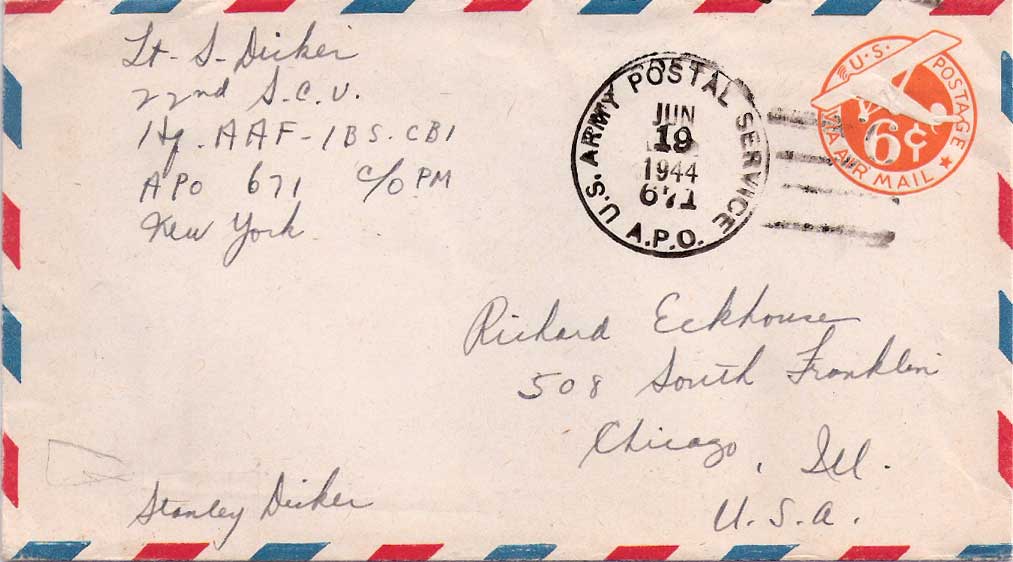 Lt. S. Dicker
22nd S.C.U.
Hq. AAF-IBS. CBI
APO 671 C/O PM
New York
U.S. ARMY POSTAL SERVICE
JUN
19
1944
671
A.P.O.
U.S. POSTAGE
6¢
VIA AIR MAIL
Richard Eckhouse
508 South Franklin
Chicago, Ill.
U.S.A.
Stanley Dicker